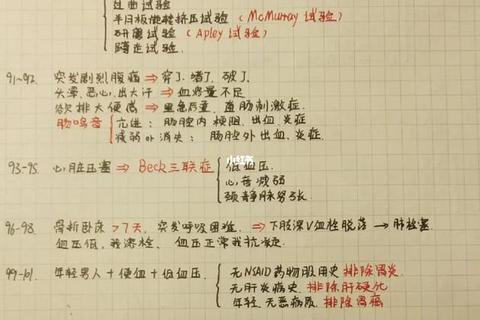 过曲试验
半月板旋转挤压试验（McMurray 试验）
研磨试验（Apley 试验）
蹲走试验
91~92. 突发剧烈腹痛 ⇒ 穿了、堵了、破了.
头晕、恶心、出大汗 ⇒ 血容量不足
欲排大便感 ⇒ 里急后重, 直肠刺激症.
肠鸣音 亢进：肠腔内梗阻、出血、炎症
减弱or消失：肠腔外出血、炎症.
93-95. 心脏压塞 ⇒ Beck三联症 低血压.
心音减弱
颈静脉努张.
小红书
96-98. 骨折卧床 >7天, 突发呼吸困难. ⇒ 下肢深V血栓脱落 → 肺栓塞.
血压低, 我溶栓. 血压正常我抗凝.
99-101. 年轻男人 + 便血 + 低血压. 无NSAID药物服用史 排除胃炎.
无肝炎病史 排除肝硬化
年轻、无恶病质, 排除胃癌